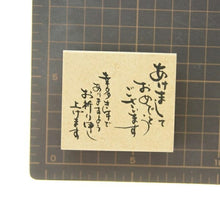 あけまして
おめでとう
ございます
幸多き年で
ありますよう
お祈り申し
上げます
5
0
5